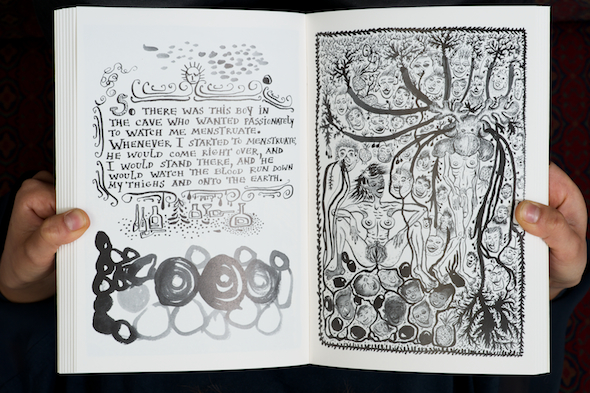 So there was this boy in
the cave who wanted passionately
to watch me menstruate.
Whenever I started to menstruate,
he would come right over, and
I would stand there, and he
would watch the blood run down
my thighs and onto the earth.